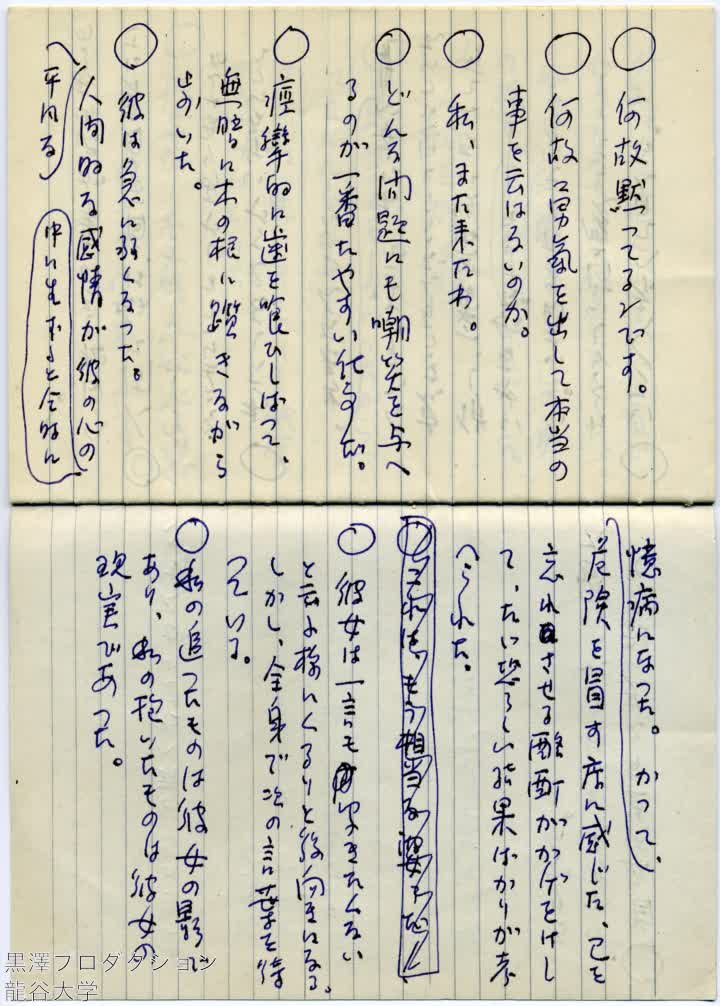 ○ 何故黙ってるンです。
○ 何故勇氣を出して本当の
事を云はないのか。
○ 私、また来たわ。
○ どんな問題にも嘲笑を与へ
るのが一番たやすい仕事だ。
○ 痙攣的に歯を喰ひしばって、
無暗に木の根に躓きながら
歩いた。
○ 彼は急に弱くなった。
人間的な感情が彼の心の
中に生ずると同時に
平凡な
憶病になった。かつて、
危険を冒す度に感じた、己を
忘れさせる酩酊がかげをけし
て、たゞ恐ろしい結果ばかりが考
へられた。
○ これは、もう相当な
○ 彼女は一言もききたくない
と云ふ様にくるりと後向きになる。
しかし、全身で次の言葉を待
っている。
○ 私の追ったものは彼女の影で
あり、私の抱いたものは彼女の
現実であった。
黒澤プロダクション
龍谷大学